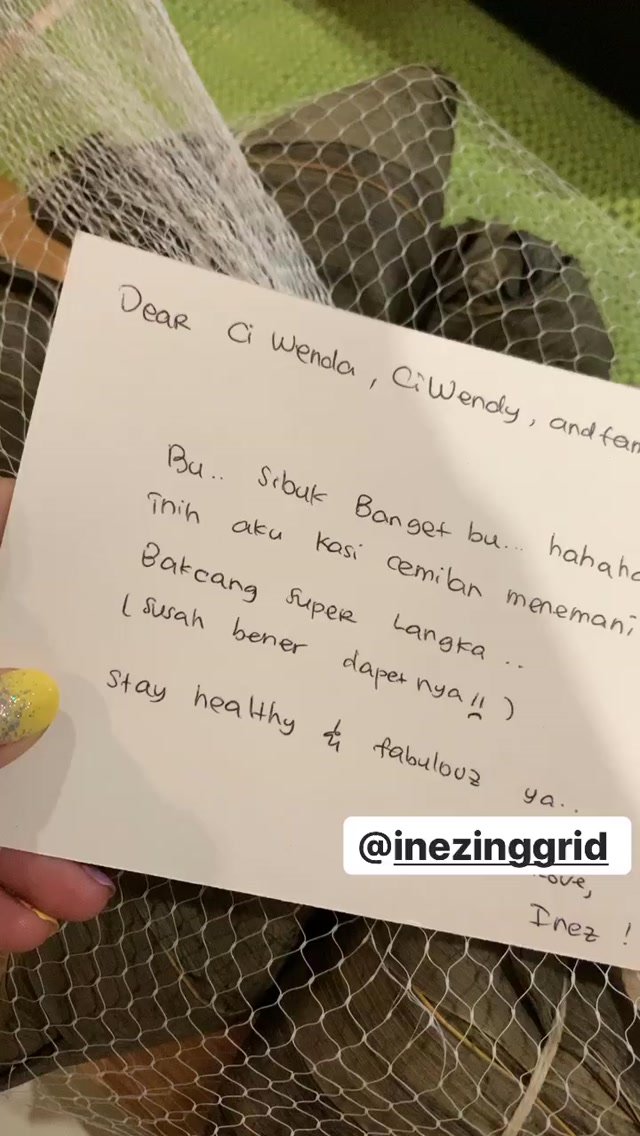 Dear Ci Wenda, Ci Wendy, and fam
Bu.. Sibuk Banget bu... hahaha
inih aku kasi cemilan menemani
Bakcang super Langka..
(susah bener dapetnya!!)
Stay healthy & fabulouz ya..
@inezinggrid
Love,
Inez !